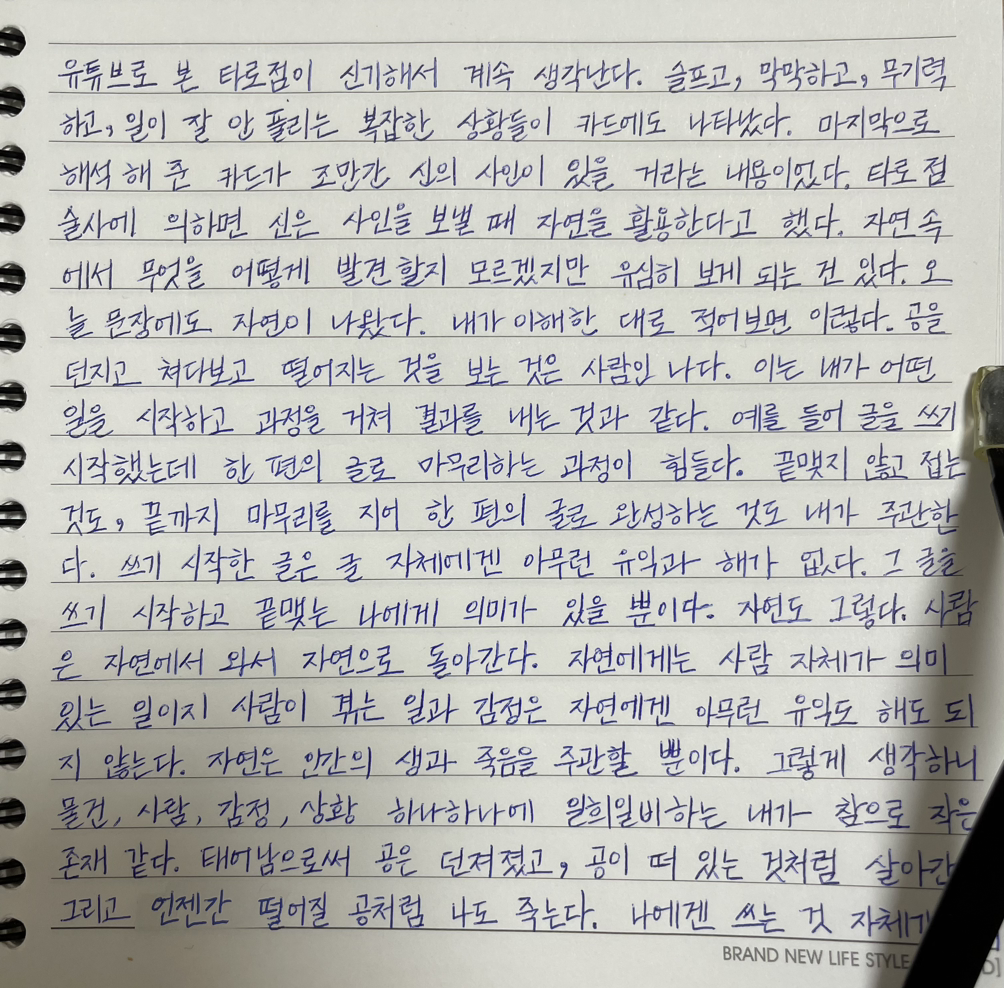 유튜브로 본 타로점이 신기해서 계속 생각난다. 슬프고, 막막하고, 무기력
하고, 일이 잘 안 풀리는 복잡한 상황들이 카드에도 나타났다. 마지막으로
해석 해 준 카드가 조만간 신의 사인이 있을 거라는 내용이었다. 타로 점
술사에 의하면 신은 사인을 보낼 때 자연을 활용한다고 했다. 자연 속
에서 무엇을 어떻게 발견할지 모르겠지만 유심히 보게 되는 건 있다. 오
늘 문장에도 자연이 나왔다. 내가 이해한 대로 적어보면 이렇다. 공을
던지고 쳐다보고 떨어지는 것을 보는 것은 사람인 나다. 이는 내가 어떤
일을 시작하고 과정을 거쳐 결과를 내는 것과 같다. 예를 들어 글을 쓰기
시작했는데 한 편의 글로 마무리하는 과정이 힘들다. 끝맺지 않고 접는
것도, 끝까지 마무리를 지어 한 편의 글로 완성하는 것도 내가 주관한
다. 쓰기 시작한 글은 글 자체에겐 아무런 유익과 해가 없다. 그 글을
쓰기 시작하고 끝맺는 나에게 의미가 있을 뿐이다. 자연도 그렇다. 사람
은 자연에서 와서 자연으로 돌아간다. 자연에게는 사람 자체가 의미
있는 일이지 사람이 겪는 일과 감정은 자연에겐 아무런 유익도 해도 되
지 않는다. 자연은 인간의 생과 죽음을 주관할 뿐이다. 그렇게 생각하니
물건, 사람, 감정, 상황 하나하나에 일희일비하는 내가 참으로 작은
존재 같다. 태어남으로써 공은 던져졌고, 공이 떠 있는 것처럼 살아간
그리고 언젠간 떨어질 공처럼 나도 죽는다. 나에겐 쓰는 것 자체가
BRAND NEW LIFE STYLE